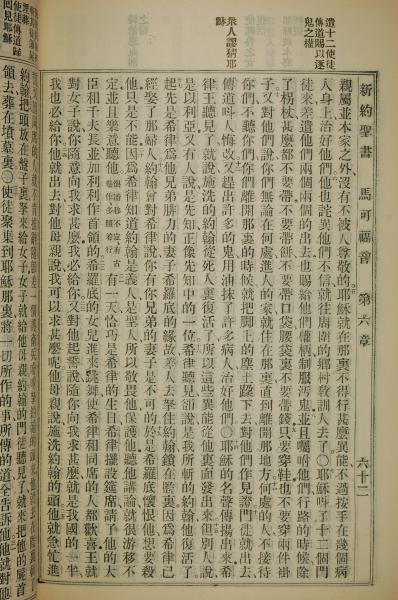 新約聖書 馬可福音 第六章 六十二
遣十二使徒
傳道賜以逐
鬼之權
親屬並本家之外沒有不被人尊敬的耶穌就在那裏不得行甚麼異能不過按手在幾個病
人身上治好他們他也詫異他們不信就往周圍的鄉村教訓人去了○耶穌呌了十二個門
徒來差遣他們兩個兩個的出去也賜給他們權柄制服汚鬼並且囑咐他們行路的時候除
了柺杖甚麼都不要帶不要帶餅不要帶口袋腰袋裏不要帶錢只要穿鞋也不要穿兩件褂
子又對他們說你們無論在何處進人的家就住在那裏直到離開那地方何處的人不接待
你們不聽你們你們離開那裏的時候就把脚上的塵土跺下去對他們作見證門徒就出去
眾人謬猜耶
穌
傳道呌人悔改又趕出許多的鬼用油抹了許多病人治好他們○耶穌的名聲傳揚出來希
律王聽見了就說施洗的約翰從死人裏復活了所以這些異能從他裏面發出來但別人說
是以利亞又有人說是先知正像先知中的一位希律聽見卻說是我所斬的約翰他復活了
起先是希律爲他兄弟腓力的妻子希羅底的緣故差人去拏住約翰鎖在監裏因爲希律已
經娶了那婦人約翰曾對希律說你有你兄弟的妻子是不可的於是希羅底懷恨他想要殺
他只是不能因爲希律知道約翰是義人是聖人所以敬畏他保護他聽他講論就很游移不
定並且樂意聽他 有一天恰巧是希律的生日希律擺設筵席請了他的大
臣和千夫長並加利利作首領的希羅底的女兒進來跳舞使希律和同席的人都歡喜王就
對女子說你隨意向我求甚麼我必給你又對他起誓說隨你向我求甚麼就是我國的一半
我也必給你他就出去對他母親說我可以求甚麼呢他母親說施洗約翰的頭他就急忙進
使徒傳道歸
回見耶穌
約翰把頭放在盤子裏拏來給女子女子就給他母親約翰的門徒聽見了就來把他的屍首
領去葬在墳墓裏○使徒聚集到耶穌那裏將一切所作的事所傳的道全告訴他他就對他